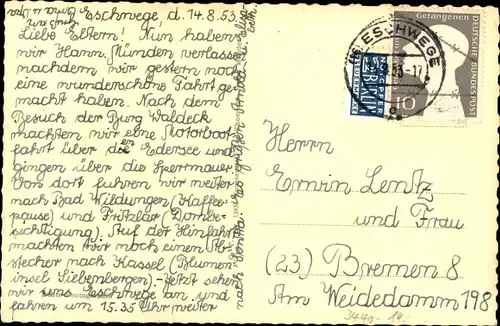 Eschwege, d. 14.8.53
Liebe Eltern! Nun haben
wir Hann. Münden verlassen
nachdem wir gestern noch
eine wunderschöne Fahrt ge-
macht haben. Nach dem
Besuch der Burg Waldeck
machten wir eine Motorboot-
fahrt über den Edersee und
gingen über die Sperrmauer.
Von dort fuhren wir weiter
nach Bad Wildungen (Kaffee-
pause) und Fritzlar (Dombe-
sichtigung). Auf der Hinfahrt
machten wir noch einen Ab-
stecher nach Kassel (Blumen-
insel Siebenbergen).- Jetzt sehen
wir uns Eschwege an und
fahren um 15.35 Uhr weiter
nach Sontra. Es grüßen
ESCHWEGE
NOTOPFER
2 BERLIN
STEUERMARKE
Gefangenen
DEUTSCHE BUNDESPOST
10
Herrn
Erwin Lentz
und Frau
(23) Bremen 8
Am Weidedamm 198